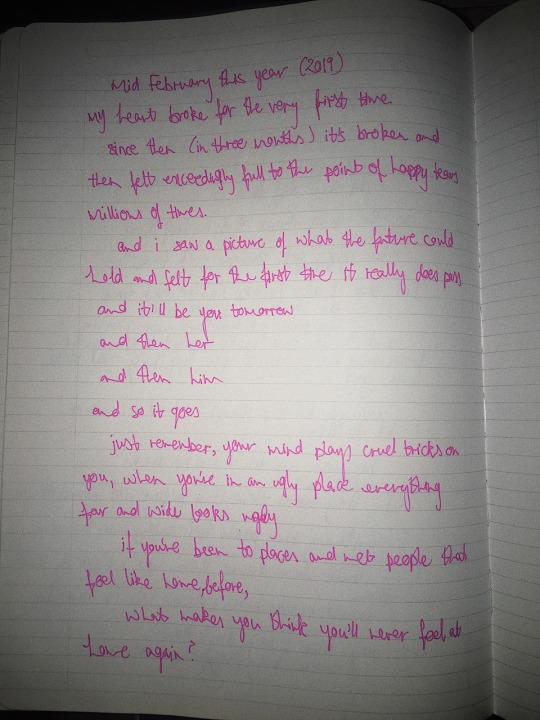 mid February this year (2019)
my heart broke for the very first time.
since then (in three months) it's broken and
then felt exceedingly full to the point of happy tears
millions of times.
and i saw a picture of what the future could
hold and felt for the first time it really does pass
and it'll be you tomorrow
and then her
and then him
and so it goes
just remember, your mind plays cruel tricks on
you, when you're in an ugly place everything
far and wide looks ugly
if you've been to places and met people that
feel like home, before,
what makes you think you'll never feel at
home again?